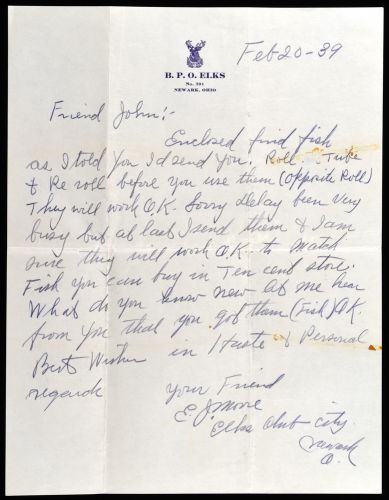 Feb 20-39
B. P. O. ELKS
No. 391
NEWARK, OHIO
Friend John:-
Enclosed find fish
as I told you I'd send you. Roll Tube
& Re roll before you use them (opposite Roll)
They will work O.K. Sorry delay been very
busy but at last I send them & I am
sure they will work O.K. to match
Fish you can buy in Ten cent store.
What do you know new let me hear
from you that you got them (Fish) O.K.
Best Wishes in Haste & Personal
regards
Your Friend
E J Moore
Elks Club city
Newark
O.